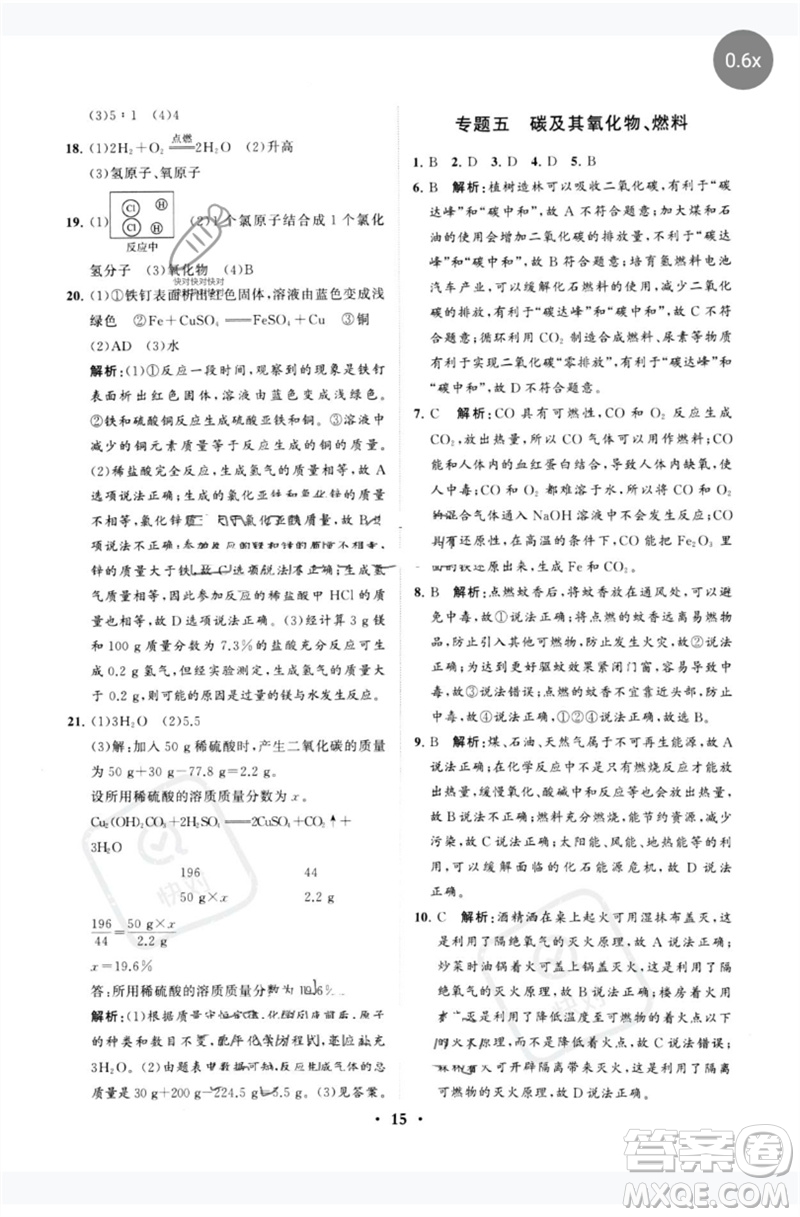 0.6x
(3)5∶1 (4)4
18. (1)2H₂+O₂ 点燃══ 2H₂O (2)升高
(3)氢原子、氧原子
19. (1) Cl H Cl H 反应中 (2)1个氯原子结合成1个氯化
氢分子 (3)氧化物 (4)B
快对快对快对
20. (1)①铁钉表面析出红色固体,溶液由蓝色变成浅
绿色 ②Fe+CuSO₄══FeSO₄+Cu ③铜
(2)AD (3)水
解析:(1)①反应一段时间,观察到的现象是铁钉
表面析出红色固体,溶液由蓝色变成浅绿色。
②铁和硫酸铜反应生成硫酸亚铁和铜。③溶液中
减少的铜元素质量与生成的铜的质量相等。
(2)稀盐酸完全反应,生成氢气的质量相等,故A
选项说法正确;生成的氯化亚铁和氯化锌的质量
不相等,氯化锌
错误;参加反应的
锌的质量大于铁
气的质量相等,因此参加反应的稀盐酸中HCl的
质量相等,故D选项说法正确。(3)经计算3 g镁
和100 g质量分数为7.3%的盐酸充分反应可生
成0.2 g氢气,但经实验测定,生成氢气的质量大
于0.2 g,则可能原因是过量的镁与水发生反应。
21. (1)3H₂O (2)5.5
(3)解:加入50 g稀硫酸时,产生二氧化碳的质量
为50 g+30 g−77.8 g=2.2 g。
设所用稀硫酸的溶质质量分数为x。
Cu₂(OH)₂CO₃+2H₂SO₄══2CuSO₄+CO₂↑+
3H₂O
196 44
50 g×x 2.2 g
196/44=50 g×x/2.2 g
x=19.6%
答:所用稀硫酸的溶质质量分数为19.6%
解析:(1)根据质量守恒定律,化学反应前后,原子
的种类和数目不变,化学方程式中,□里应补充
3H₂O。(2)由题表中数据可知,生成气体的总
质量是30 g+200 g−224.5 g=5.5 g。(3)见答案。
专题五 碳及其氧化物、燃料
1. B 2. D 3. D 4. D 5. B
6. B 解析:植树造林可以吸收二氧化碳,有利于“碳
达峰”和“碳中和”,故A不符合题意;加大煤和石
油的使用会增加二氧化碳的排放量,不利于“碳达
峰”和“碳中和”,故B符合题意;培育氢燃料电池
汽车产业,可以缓解化石燃料的使用,减少二氧化
碳的排放,有利于“碳达峰”和“碳中和”,故C不符
合题意;循环利用CO₂制造合成燃料、尿素等物质
有利于实现二氧化碳“零排放”,有利于“碳达峰”和
“碳中和”,故D不符合题意。
7. C 解析:CO具有可燃性,CO和O₂反应生成
CO₂,放出热量,所以CO气体可以用作燃料;CO
能和人体内的血红蛋白结合,导致人体内缺氧,使
人中毒;CO和O₂都难溶于水,所以CO和O₂
的混合气体通入NaOH溶液中不会发生反应;CO
具有还原性,在高温的条件下,CO能把Fe₂O₃里
的铁还原出来。
8. B 解析:点燃蚊香后,将蚊香放在通风处,可以避
免中毒,故①说法正确;将点燃的蚊香远离可燃物
品,可以防止发生火灾,故②说法正确;为了达到
高效驱蚊效果紧闭门窗,易导致一氧化碳中毒,
故③说法错误;点燃的蚊香不宜靠近头部,以免
中毒,故④说法正确。①②④正确,故选B。
9. B 解析:煤、石油、天然气属于不可再生能源,故A
说法正确;在化学反应中不是只有燃烧反应放出
热量,缓慢氧化、酸碱中和反应等也能放出热量,
故B说法错误;燃料充分燃烧,能节约资源,减少
污染,故C说法正确;太阳能、风能、地热能等新能
源,可以缓解面临的化石能源危机,故D说法
正确。
10. C 解析:酒精洒在桌上起火可用湿抹布盖灭,这
是利用了隔绝氧气的灭火原理,故A说法正确;
炒菜时油锅着火可盖上锅盖灭火,这是利用了隔
绝氧气的灭火原理,故B说法正确;楼房着火可以
灭火,这是利用了降低温度至可燃物的着火点以下
的灭火原理,故C说法错误;
可开辟隔离带来灭火,这是利用了隔离
可燃物的灭火原理,故D说法正确。
• 15 •
快对
答案圈
MXQE.COM